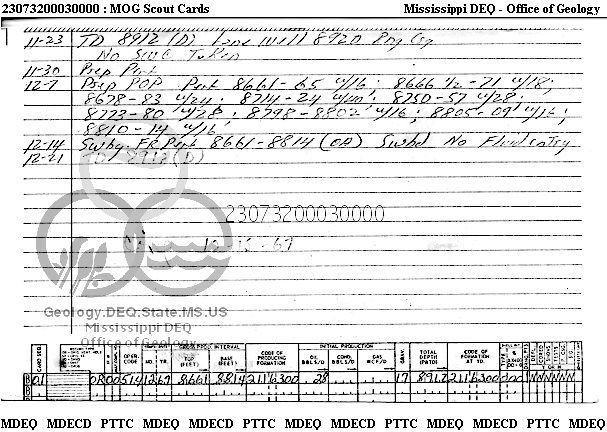 23073200030000 : MOG Scout Cards Mississippi DEQ - Office of Geology
11-23 TD 8912 (D) Long Well 8920 Rng Csg
No SWC Taken
11-30 Prep Perf
12-7 Prep POP Perf 8661-65 w/16; 8666 1/2-71 w/18;
8678-83 w/24; 8714-24 w/40; 8750-57 w/28;
8773-80 w/28; 8798-8802 w/16; 8805-09 w/16;
8810-14 w/16
12-14 Swbg. FR Perf 8661-8814 (OA) Swbd No Fluid entry
12-21 TD 8912 (D)
23073200030000
12-15-67
Geology.Deq.State.MS.US
Mississippi DEQ
Office of Geology
CARD SEQ. OPER. CODE MO. YR. INTERVAL TOP (FEET) BASE (FEET) CODE OF PRODUCING FORMATION INITIAL PRODUCTION OIL BBLS/D COND. BBLS/D GAS MCF/D GRAV. TOTAL DEPTH (PBTD) CODE OF FORMATION AT TD.
01 0R00514 12 67 8661 8814 2116300 28 17 8912 2116300 00 NNNNNN
MDEQ MDECD PTTC MDEQ MDECD PTTC MDEQ MDECD PTTC MDEQ MDECD PTTC MDEQ